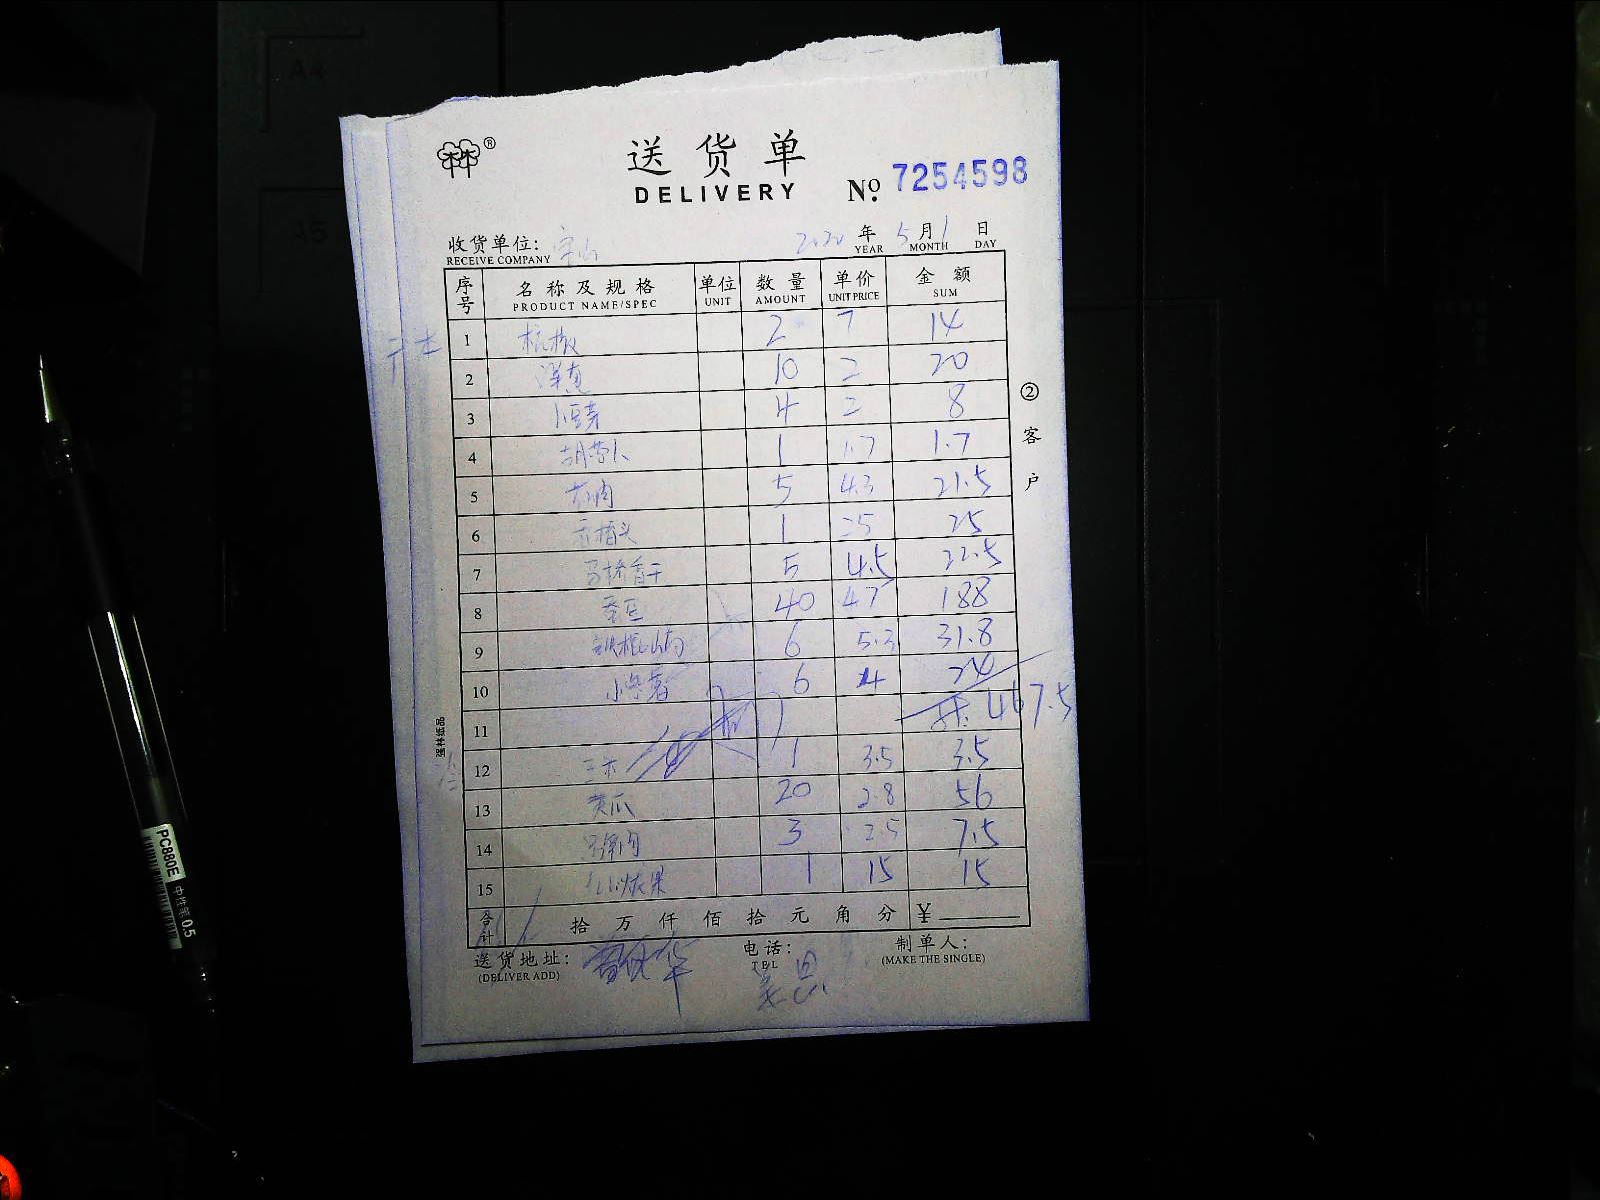 A4
A5
®
送货单
DELIVERY
№ 7254598
收货单位: 宝山 2020 年 5 月 1 日
RECEIVE COMPANY YEAR MONTH DAY
序号 名称及规格 单位 数量 单价 金额
PRODUCT NAME/SPEC UNIT AMOUNT UNIT PRICE SUM
1 杭椒 2 7 14
2 洋葱 10 2 20
3 4 2 8
4 胡萝卜 1 1.7 1.7
5 5 4.3 21.5
6 1 25 25
7 马桥香干 5 4.5 22.5
8 蚕豆 40 47 188
9 6 5.3 31.8
10 6 4 24
11 467.5
12 1 3.5 3.5
13 黄瓜 20 2.8 56
14 3 2.5 7.5
15 1 15 15
合计 拾 万 仟 佰 拾 元 角 分 ¥
送货地址: 电话: 制单人:
(DELIVER ADD) TEL (MAKE THE SINGLE)
②客户
强林纸品
PC880E 中性笔 0.5